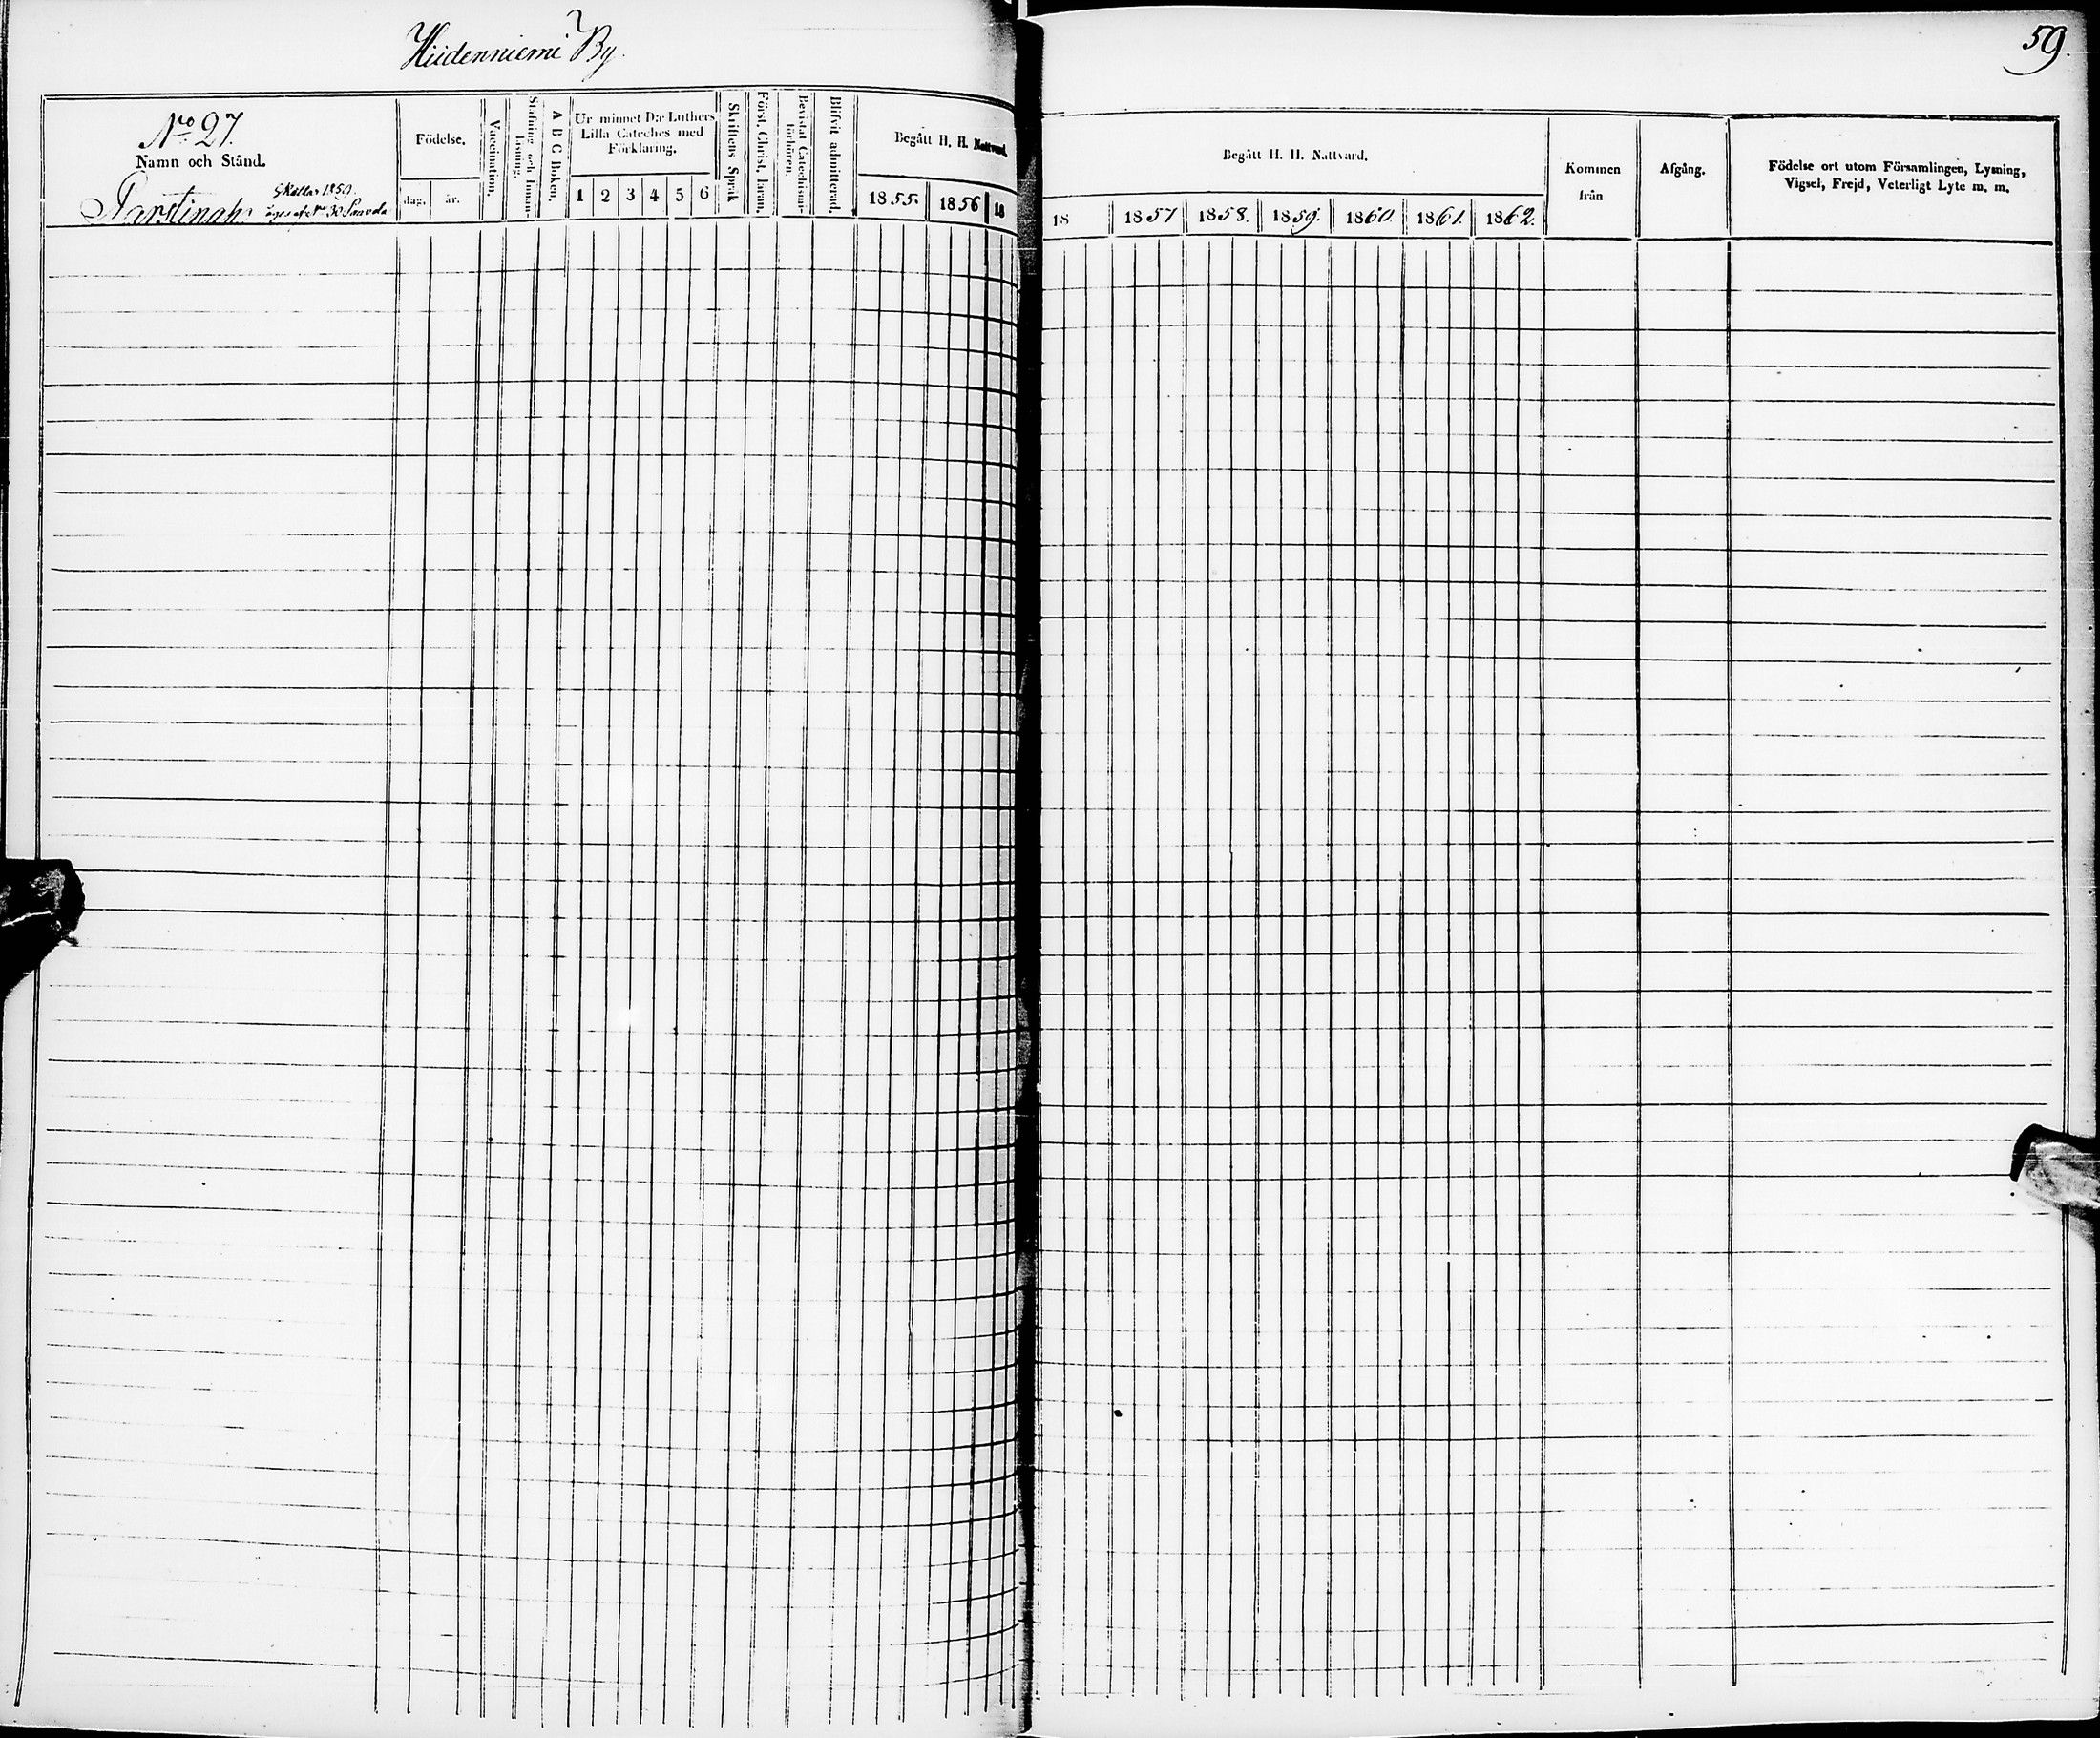 Hiidenniemi By.
59.
No 27.
Namn och Stånd.
Skattar 1859.
Parstinaho äges af No 30 Panula
Födelse.
dag.
år.
Vaccination.
Stafning och Innanläsning.
A B C Boken.
Ur minnet D:r Luthers
Lilla Cateches med
Förklaring.
1 2 3 4 5 6
Skriftens Språk
Först. Christ. läran.
Bevistat Catechismi-
förhören.
Blifvit admitterad.
Begått H. H. Nattvard.
1855. 1856 18
Begått H. H. Nattvard.
18 1857 1858. 1859. 1860. 1861. 1862.
Kommen
från
Afgång.
Födelse ort utom Församlingen, Lysning,
Vigsel, Frejd, Veterligt Lyte m. m.